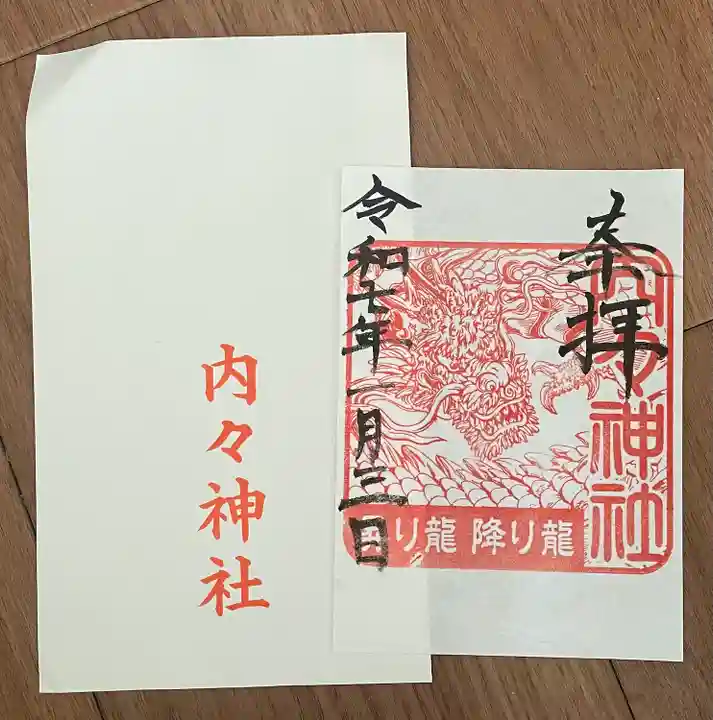 内々神社
奉拝
内々神社
り龍 降り龍
令和七年一月三日